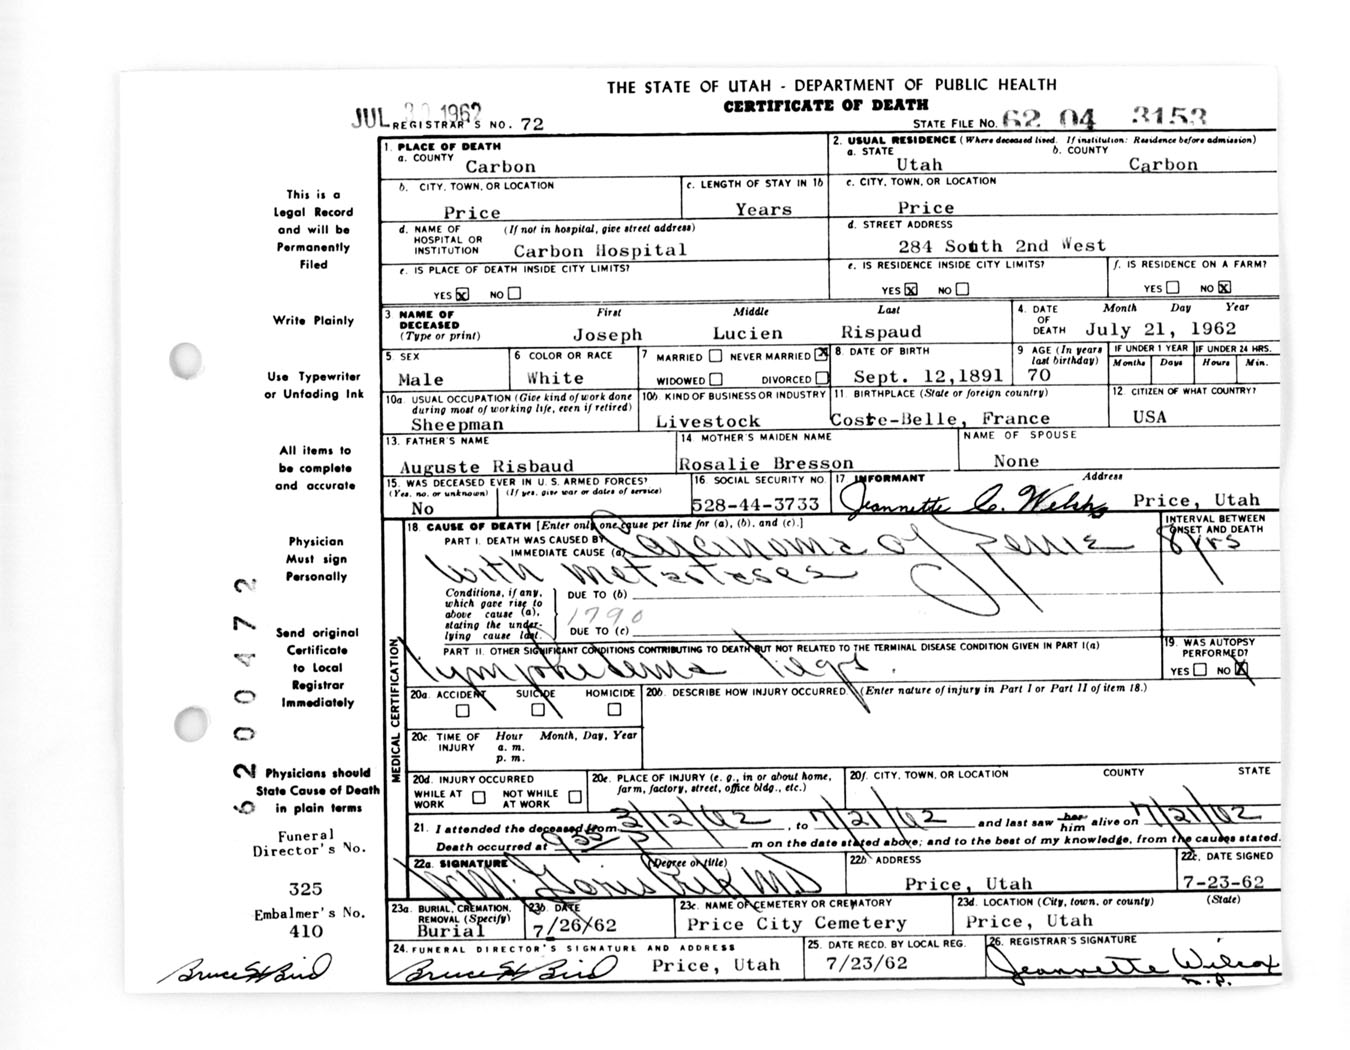 THE STATE OF UTAH - DEPARTMENT OF PUBLIC HEALTH
CERTIFICATE OF DEATH
JUL 30 1962
REGISTRAR'S NO. 72
STATE FILE NO. 62 04 3153
This is a
Legal Record
and will be
Permanently
Filed
Write Plainly
Use Typewriter
or Unfading Ink
All items to
be complete
and accurate
Physician
Must sign
Personally
Send original
Certificate
to Local
Registrar
Immediately
Physicians should
State Cause of Death
in plain terms
Funeral
Director's No.
325
Embalmer's No.
410
Bruce H Bird
6200472
1. PLACE OF DEATH
a. COUNTY
Carbon
2. USUAL RESIDENCE (Where deceased lived. If institution: Residence before admission)
a. STATE b. COUNTY
Utah Carbon
b. CITY, TOWN, OR LOCATION
Price
c. LENGTH OF STAY IN 1b
Years
c. CITY, TOWN, OR LOCATION
Price
d. NAME OF (If not in hospital, give street address)
HOSPITAL OR
INSTITUTION Carbon Hospital
d. STREET ADDRESS
284 South 2nd West
e. IS PLACE OF DEATH INSIDE CITY LIMITS?
YES X NO
e. IS RESIDENCE INSIDE CITY LIMITS?
YES X NO
f. IS RESIDENCE ON A FARM?
YES NO X
3 NAME OF First Middle Last
DECEASED
(Type or print) Joseph Lucien Rispaud
4. DATE Month Day Year
OF
DEATH July 21, 1962
5 SEX
Male
6 COLOR OR RACE
White
7 MARRIED NEVER MARRIED X
WIDOWED DIVORCED
8 DATE OF BIRTH
Sept. 12,1891
9 AGE (In years
last birthday)
70
IF UNDER 1 YEAR IF UNDER 24 HRS.
Months Days Hours Min.
10a. USUAL OCCUPATION (Give kind of work done
during most of working life, even if retired)
Sheepman
10b. KIND OF BUSINESS OR INDUSTRY
Livestock
11 BIRTHPLACE (State or foreign country)
Coste-Belle, France
12 CITIZEN OF WHAT COUNTRY?
USA
13. FATHER'S NAME
Auguste Risbaud
14 MOTHER'S MAIDEN NAME
Rosalie Bresson
NAME OF SPOUSE
None
15. WAS DECEASED EVER IN U.S. ARMED FORCES?
(Yes, no. or unknown) (If yes, give war or dates of service)
No
16 SOCIAL SECURITY NO.
528-44-3733
17 INFORMANT Address
Jeannette C. Welsh Price, Utah
18. CAUSE OF DEATH [Enter only one cause per line for (a), (b), and (c).]
PART I. DEATH WAS CAUSED BY
IMMEDIATE CAUSE (a) Carcinoma of Penis
with metastases
INTERVAL BETWEEN
ONSET AND DEATH
8 yrs
Conditions, if any,
which gave rise to
above cause (a),
stating the under-
lying cause last.
DUE TO (b)
1790
DUE TO (c)
PART II. OTHER SIGNIFICANT CONDITIONS CONTRIBUTING TO DEATH BUT NOT RELATED TO THE TERMINAL DISEASE CONDITION GIVEN IN PART I(a)
Lymphedema legs.
19. WAS AUTOPSY
PERFORMED?
YES NO X
MEDICAL CERTIFICATION
20a. ACCIDENT SUICIDE HOMICIDE
20b. DESCRIBE HOW INJURY OCCURRED. (Enter nature of injury in Part I or Part II of item 18.)
20c. TIME OF Hour Month, Day, Year
INJURY a. m.
p. m.
20d. INJURY OCCURRED
WHILE AT NOT WHILE
WORK AT WORK
20e. PLACE OF INJURY (e. g., in or about home,
farm, factory, street, office bldg., etc.)
20f. CITY, TOWN, OR LOCATION COUNTY STATE
21. I attended the deceased from 3/12/62, to 7/21/62 and last saw her him alive on 7/21/62
Death occurred at 9:55 P m on the date stated above; and to the best of my knowledge, from the causes stated.
22a. SIGNATURE (Degree or title)
MD
22b ADDRESS
Price, Utah
22c. DATE SIGNED
7-23-62
23a. BURIAL, CREMATION,
REMOVAL (Specify)
Burial
23b. DATE
7/26/62
23c. NAME OF CEMETERY OR CREMATORY
Price City Cemetery
23d. LOCATION (City, town, or county) (State)
Price, Utah
24. FUNERAL DIRECTOR'S SIGNATURE AND ADDRESS
Bruce H Bird Price, Utah
25. DATE RECD. BY LOCAL REG.
7/23/62
26. REGISTRAR'S SIGNATURE
Jeannette Wilcox